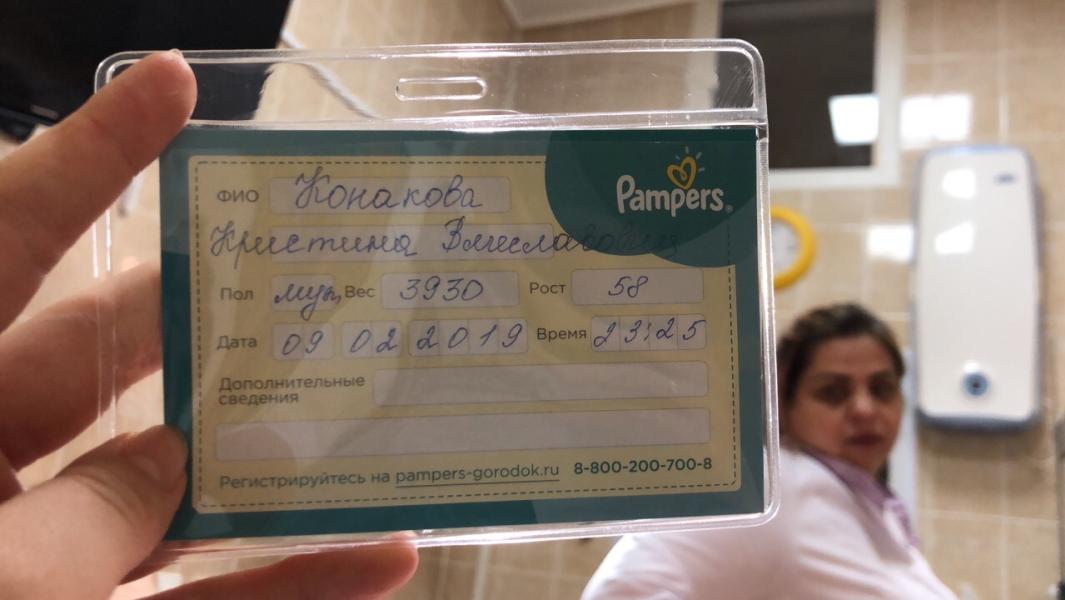 Pampers®
ФИО Конакова
Кристина Вячеславовна
Пол муж, Вес 3930 Рост 58
Дата 09 02 2019 Время 23:25
Дополнительные
сведения
Регистрируйтесь на pampers-gorodok.ru 8-800-200-700-8